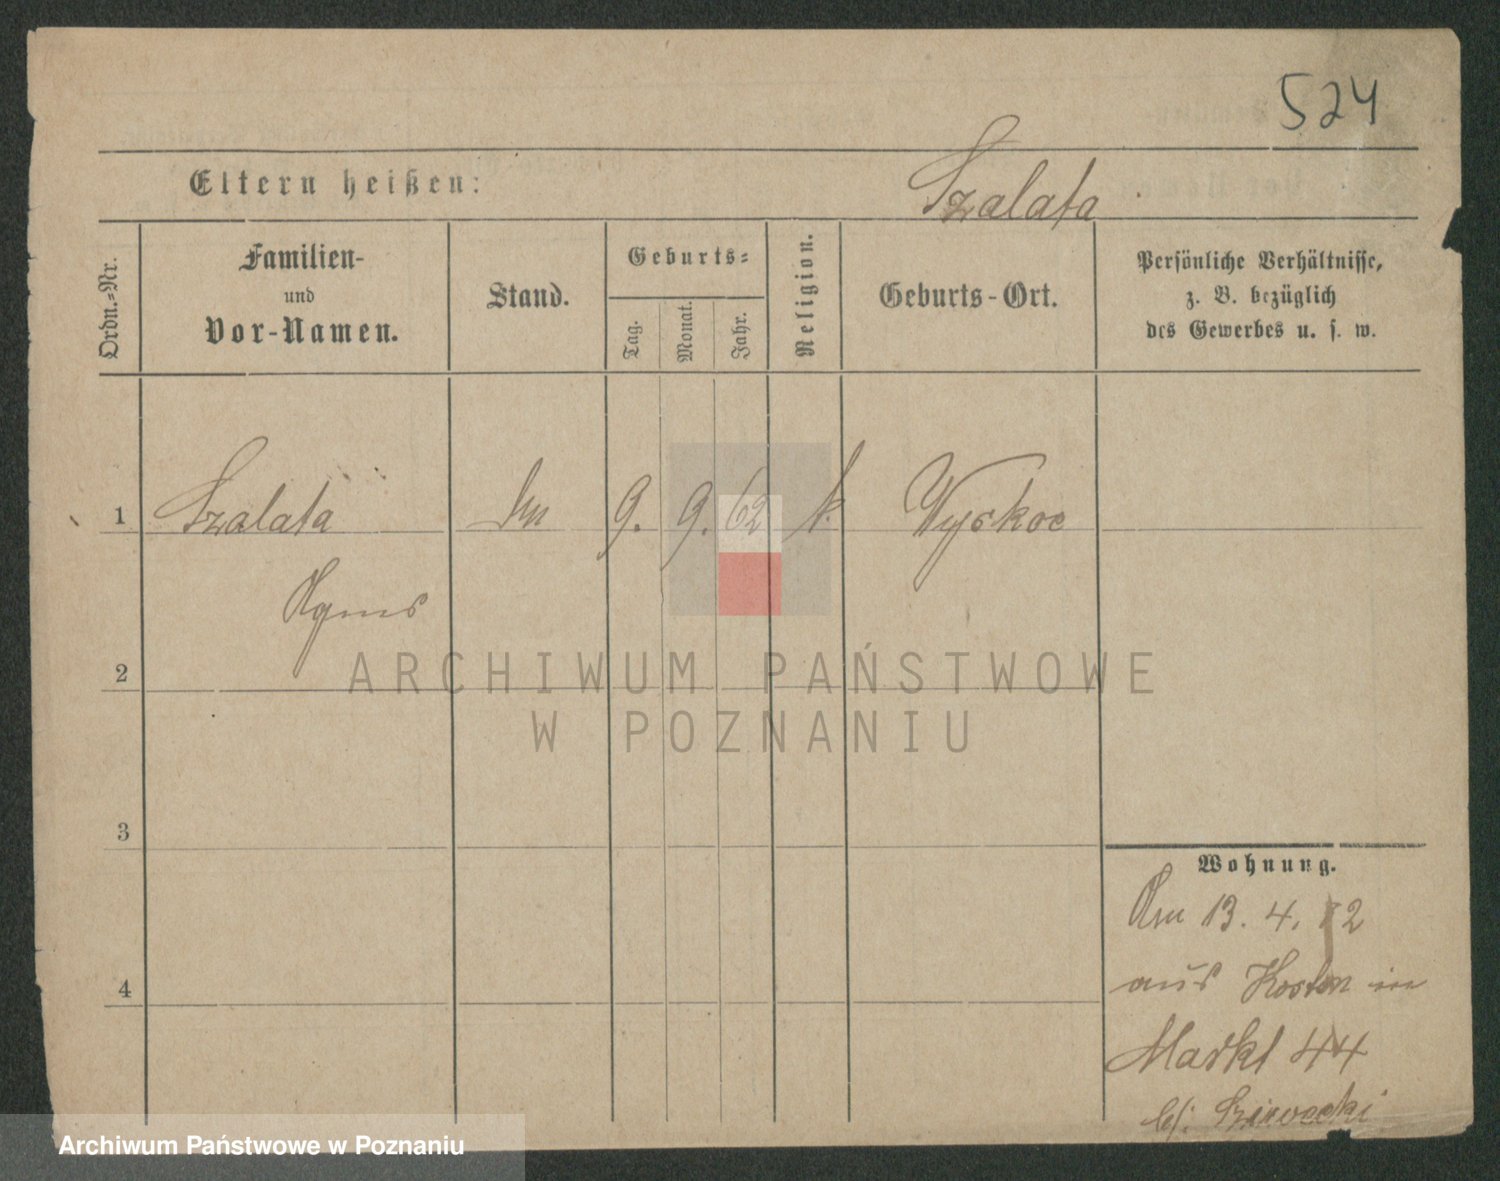 524
Eltern heißen: Szalata
Ordn.=Nr.
Familien-
und
Vor-Namen.
Stand.
Geburts=
Tag.
Monat.
Jahr.
Religion.
Geburts-Ort.
Persönliche Verhältnisse,
z. B. bezüglich
des Gewerbes u. s. w.
1 Szalata 9. 9. 62 k. Wyskoc
Agnes
2
3
4
Wohnung.
Am 13. 4. 12
aus Kosten in
Markt 44
bei
ARCHIWUM PAŃSTWOWE
W POZNANIU
Archiwum Państwowe w Poznaniu